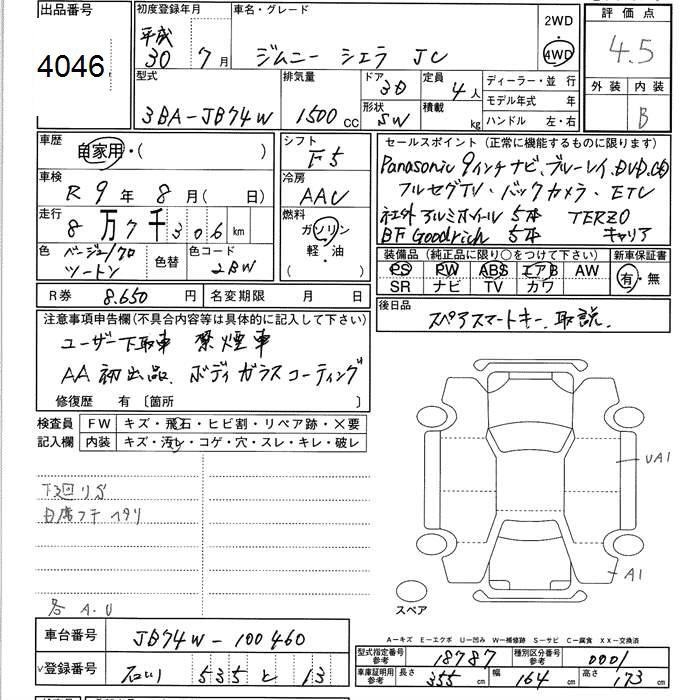 出品番号
4046
初度登録年月
平成
30 7月
車名・グレード
ジムニー シエラ JC
2WD
・
4WD
評価点
4.5
外装 内装
B
型式
3BA-JB74W
排気量
1500cc
ドア
3D
形状
SW
定員
4人
積載
kg
ディーラー・並行
モデル年式 年
ハンドル 左・右
車歴
自家用・( )
車検
R 9年 8月( 日)
走行
8万7千306km
色
ベージュ/クロ
ツートン
色替
色コード
2BW
シフト
F5
冷房
AAC
燃料
ガソリン
軽・油
( )
セールスポイント(正常に機能するものに限ります)
Panasonic 9インチナビ、ブルーレイ、DVD、CD
フルセグTV・バックカメラ・ETC
社外アルミホイール 5本 TERZO
BF Goodrich 5本 キャリア
装備品(純正品に限り○をつけて下さい) 新車保証書
PS PW ABS エアB AW
SR ナビ TV カワ
有・無
R券 8.650円
名変期限 月 日
後日品
スペアスマートキー、取説、
注意事項申告欄(不具合内容等は具体的に記入して下さい)
ユーザー下取車 禁煙車
AA初出品、ボディガラスコーティング
修復歴 有〔箇所 〕
検査員
記入欄
FW キズ・飛石・ヒビ割・リペア跡・×要
内装 キズ・汚レ・コゲ・穴・スレ・キレ・破レ
下廻りサ
白席フチヘタリ
各A.U
UA1
A1
スペア
A-キズ E-エクボ U-凹み W-補修跡 S-サビ C-腐食 XX-交換済
車台番号
JB74W-100460
登録番号
535 と 13
型式指定番号
参考
18787
種別区分番号
参考
0001
車庫証明用
参考
長さ 355cm 幅 164cm 高さ 173cm